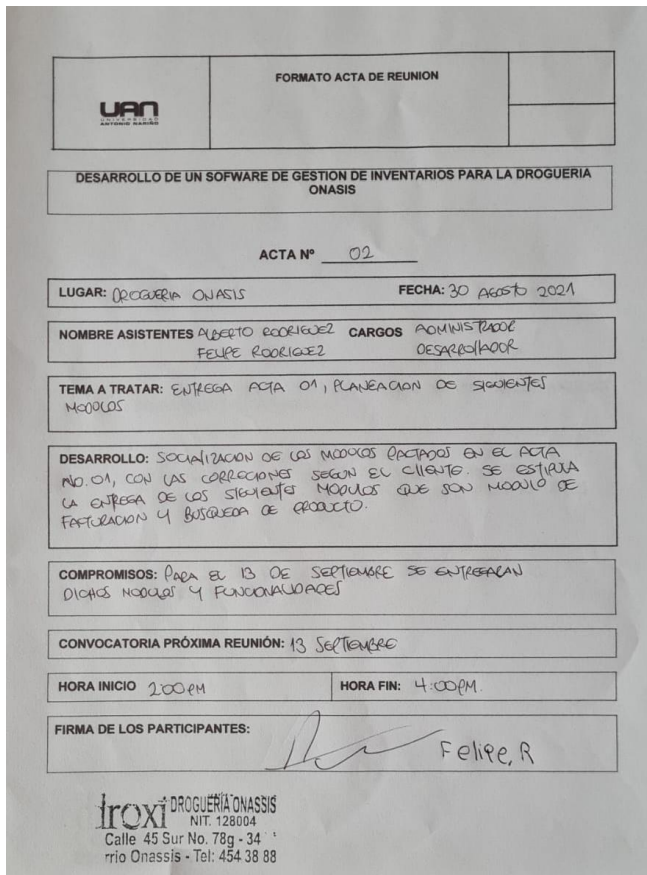 FORMATO ACTA DE REUNION
UAN
UNIVERSIDAD
ANTONIO NARIÑO
DESARROLLO DE UN SOFWARE DE GESTION DE INVENTARIOS PARA LA DROGUERIA
ONASIS
ACTA Nº 02
LUGAR: DROGUERIA ONASIS FECHA: 30 AGOSTO 2021
NOMBRE ASISTENTES ALBERTO RODRIGUEZ CARGOS ADMINISTRADOR
FELIPE RODRIGUEZ DESARROLLADOR
TEMA A TRATAR: ENTREGA ACTA 01, PLANEACION DE SIGUIENTES
MODULOS
DESARROLLO: SOCIALIZACION DE LOS MODULOS PACTADOS EN EL ACTA
NO.01, CON LAS CORRECIONES SEGUN EL CLIENTE. SE ESTIPULA
LA ENTREGA DE LOS SIGUIENTES MODULOS QUE SON MODULO DE
FACTURACION Y BUSQUEDA DE PRODUCTO.
COMPROMISOS: PARA EL 13 DE SEPTIEMBRE SE ENTREGARAN
DICHOS MODULOS Y FUNCIONALIDADES
CONVOCATORIA PRÓXIMA REUNIÓN: 13 SEPTIEMBRE
HORA INICIO 2:00PM HORA FIN: 4:00PM.
FIRMA DE LOS PARTICIPANTES:
Felipe, R
DROGUERÍA ONASSIS
NIT. 128004
Calle 45 Sur No. 78g - 34
rrio Onassis - Tel: 454 38 88